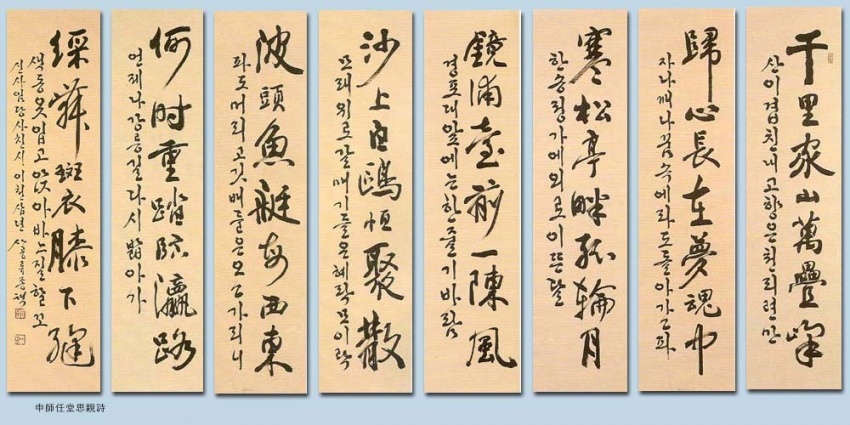 千里家山萬疊峰
산이 겹친 내 고향은 천리련만
歸心長在夢魂中
자나깨나 꿈속에라도 돌아가고파
寒松亭畔孤輪月
한송정가에 외로이 뜬 달
鏡浦臺前一陳風
경포대 앞에는 한줄기 바람
沙上白鷗恒聚散
모래 위로 갈매기들은 헤락 모이락
波頭魚艇每西東
파도 머리 고깃배들은 오고가리니
何时重踏臨瀛路
언제나 강릉길 다시 밟아가
綵舞斑衣膝下縫
색동옷 입고 앉아 바느질할꼬
신사임당 사친시 이천삼년
申師任堂思親詩